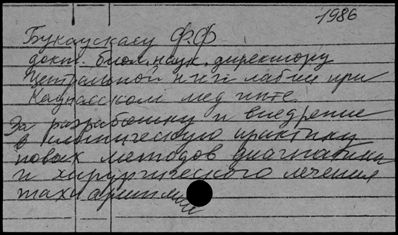 1986
Букаускасу Ф.Ф
докт. биол. наук, директору
Центральной н и лабии при
Каунасском мед инте
За разработку и внедрение
в клиническую практику
новых методов диагностики
и хирургического лечения
тахиаритмий